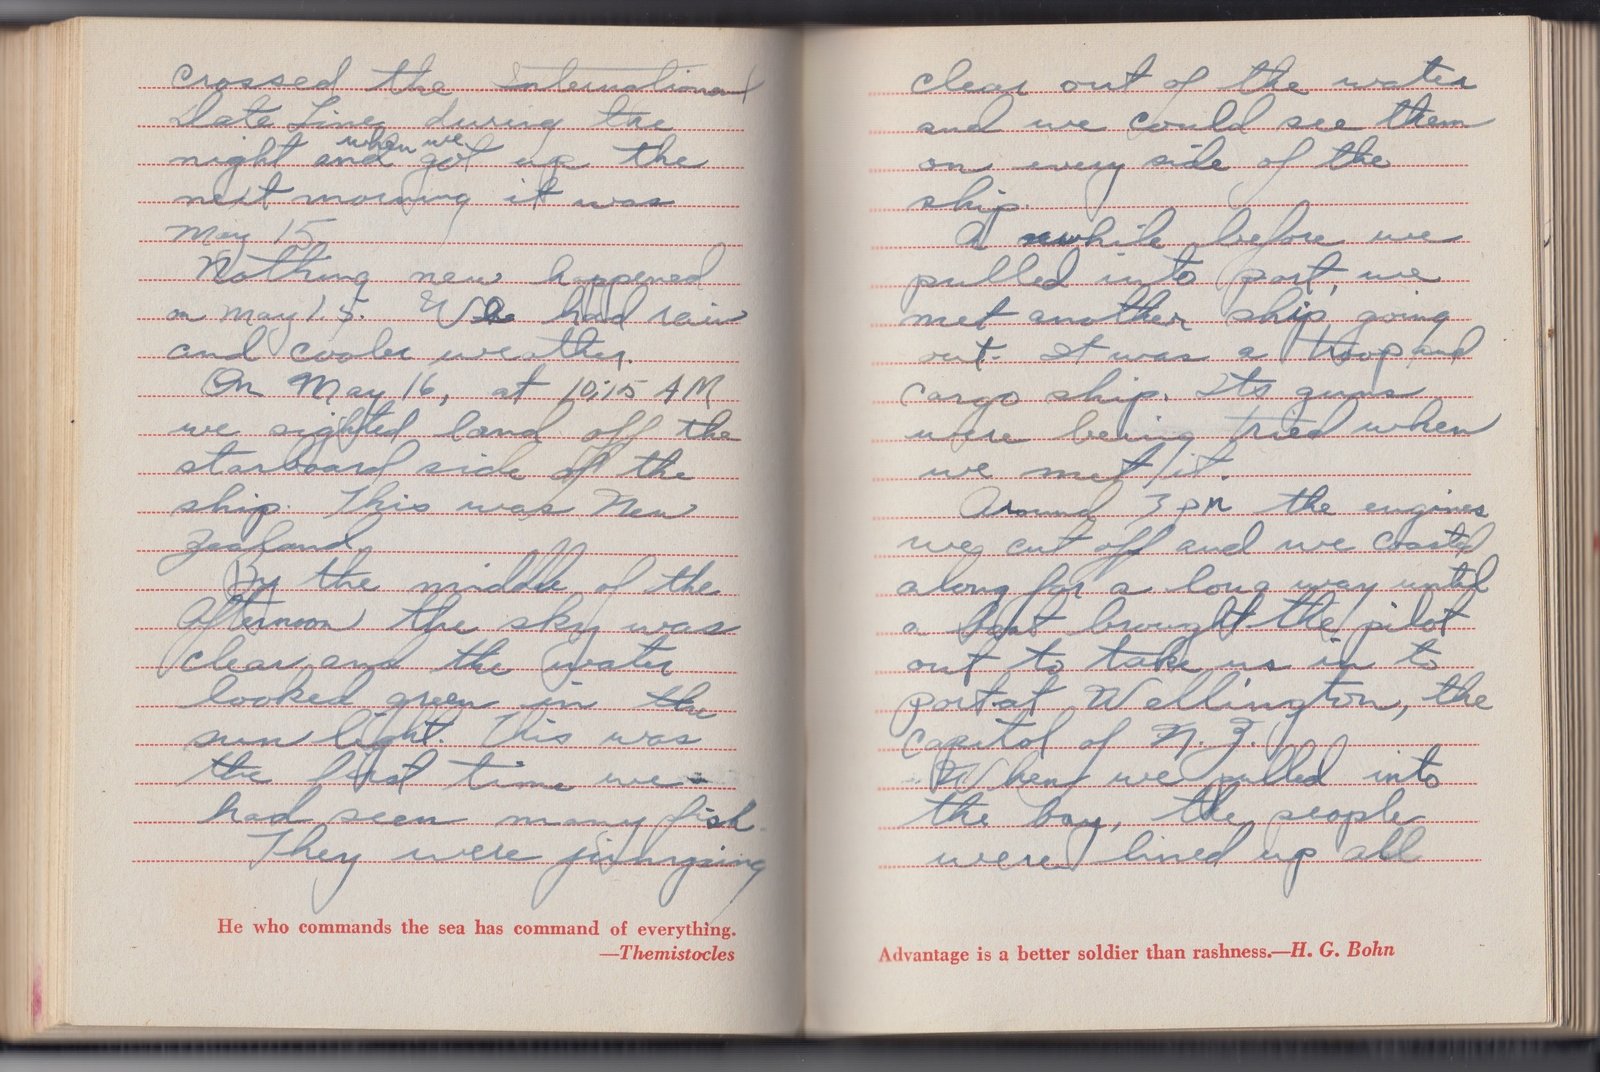 crossed the International
Date Line during the
night and when we got up the
next morning it was
May 15
Nothing new happened
on May 15. We had rain
and cooler weather.
On May 16, at 10:15 AM
we sighted land off the
starboard side of the
ship. This was New
Zealand.
By the middle of the
afternoon the sky was
clear and the water
looked green in the
sun light. This was
the first time we
had seen many fish.
They were jumping
He who commands the sea has command of everything.
—Themistocles
clear out of the water
and we could see them
on every side of the
ship.
A while before we
pulled into port, we
met another ship going
out. It was a troop and
cargo ship. Its guns
were being tried when
we met it.
Around 3 PM the engines
we cut off and we coasted
along for a long way until
a boat brought the pilot
out to take us in to
port at Wellington, the
capitol of N. Z.
When we pulled into
the bay, the people
were lined up all
Advantage is a better soldier than rashness.—H. G. Bohn